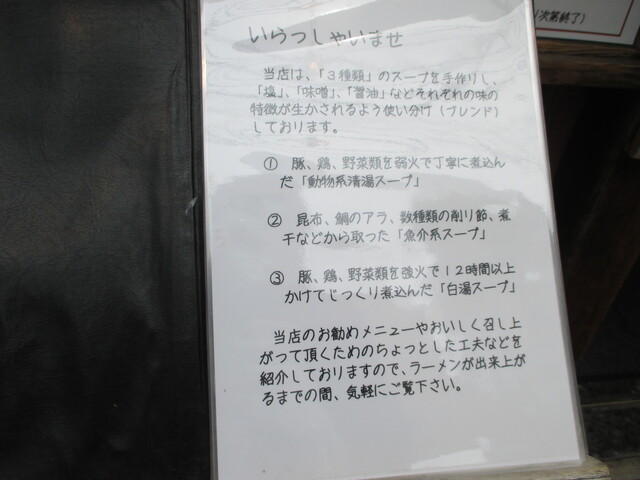 いらっしゃいませ
当店は、「3種類」のスープを手作りし、
「塩」、「味噌」、「醤油」などそれぞれの味の
特徴が生かされるよう使い分け(ブレンド)
しております。
① 豚、鶏、野菜類を弱火で丁寧に煮込ん
だ「動物系清湯スープ」
② 昆布、鯛のアラ、数種類の削り節、煮
干などから取った「魚介系スープ」
③ 豚、鶏、野菜類を強火で12時間以上
かけてじっくり煮込んだ「白湯スープ」
当店のお勧めメニューやおいしく召し上
がって頂くためのちょっとした工夫などを
紹介しておりますので、ラーメンが出来上が
るまでの間、気軽にご覧下さい。
次第終了)